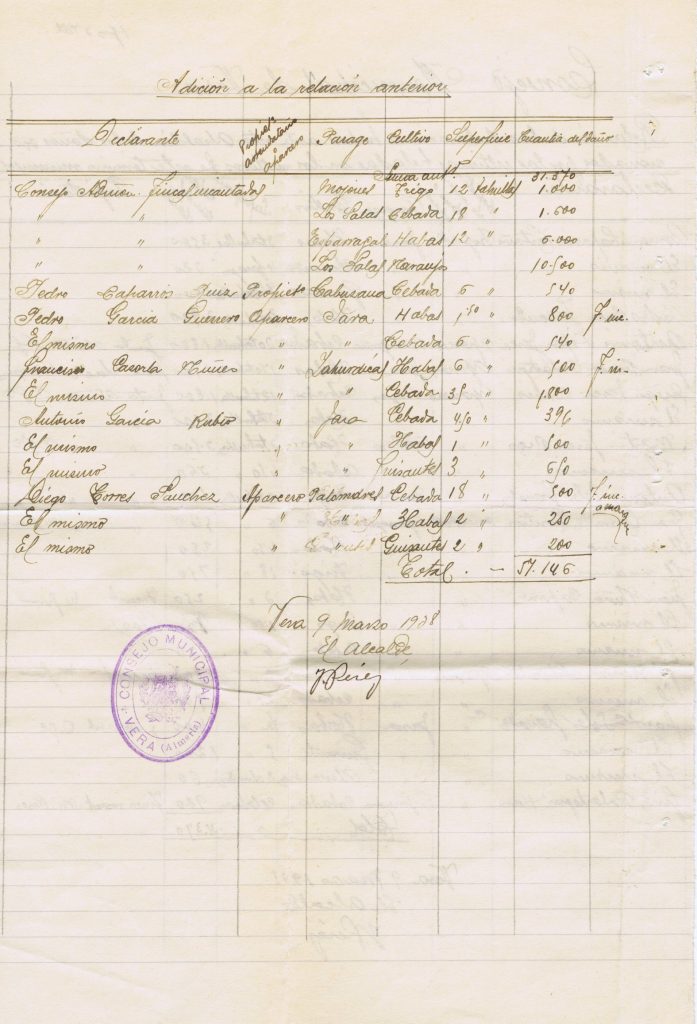 Adición a la relación anterior
Declarante Propiet. arrendatario Aparcero Parage Cultivo Superficie Cuantía del daño
Suma antr. 31.370
Consejo Admon. Fincas incautadas Mojones Trigo 12 tahullas 1.000
" " Los Salas Cebada 18 " 1.600
" " Esparragal Habas 12 " 6.000
" " Los Salas Naranjos 10.500
Pedro Caparrós Ruiz Propiet. Cebada 6 " 540
Pedro García Guerrero Aparcero Jara Habas 1,50 " 800 F. inc.
El mismo " " Cebada 6 " 540
Francisco Casorla Núñez " Habas 6 " 500 F. in.
El mismo " " Cebada 35 " 1,800
Antonio García Rubio " Jara Cebada 4,50 " 396
El mismo " " Habas 1 " 500
El mismo " " Guisantes 3 " 650
Diego Torres Sanchez Aparcero Palomares Cebada 18 " 500 F. inc.
El mismo " " Habas 2 " 250
El mismo " " Guisantes 2 " 200
Total . — 57.146
Vera 9 Marzo 1938
El Alcalde,
J Pérez
CONSEJO MUNICIPAL
VERA (Almería)